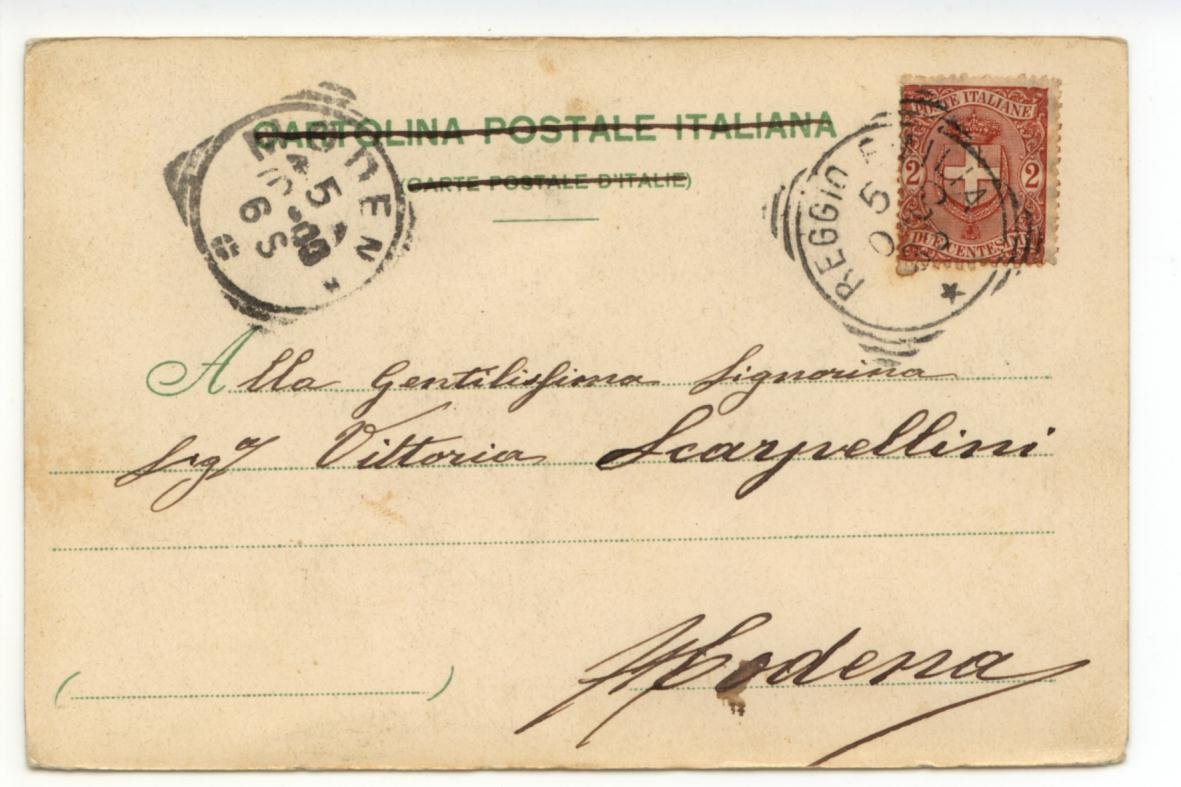 CARTOLINA POSTALE ITALIANA
(CARTE POSTALE D'ITALIE)
POSTE ITALIANE
2 2
DUE CENTESIMI
REGGIO EMILIA
5
MODENA
5
-00
6 S
Alla Gentilissima Signorina
Sigª Vittoria Scarpellini
Modena